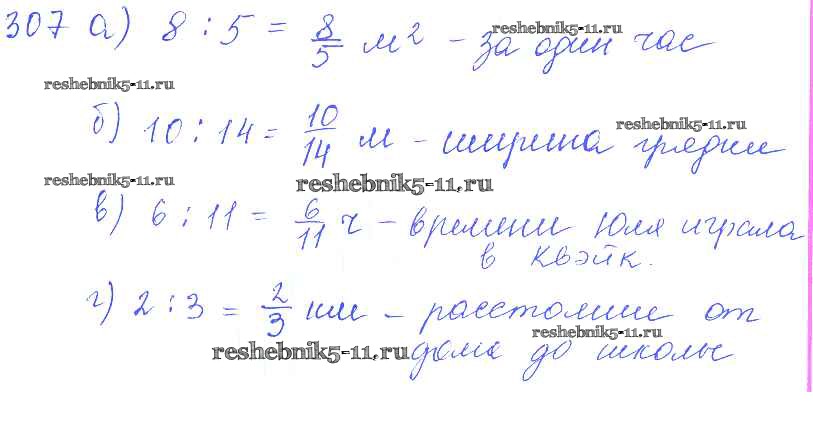 307 а) 8 : 5 = 8/5 м² – за один час
reshebnik5-11.ru
reshebnik5-11.ru
б) 10 : 14 = 10/14 м – ширина грядки
reshebnik5-11.ru
reshebnik5-11.ru
reshebnik5-11.ru
в) 6 : 11 = 6/11 ч – времени Юля играла
в Квэйк.
г) 2 : 3 = 2/3 км – расстояние от
reshebnik5-11.ru
reshebnik5-11.ru дома до школы